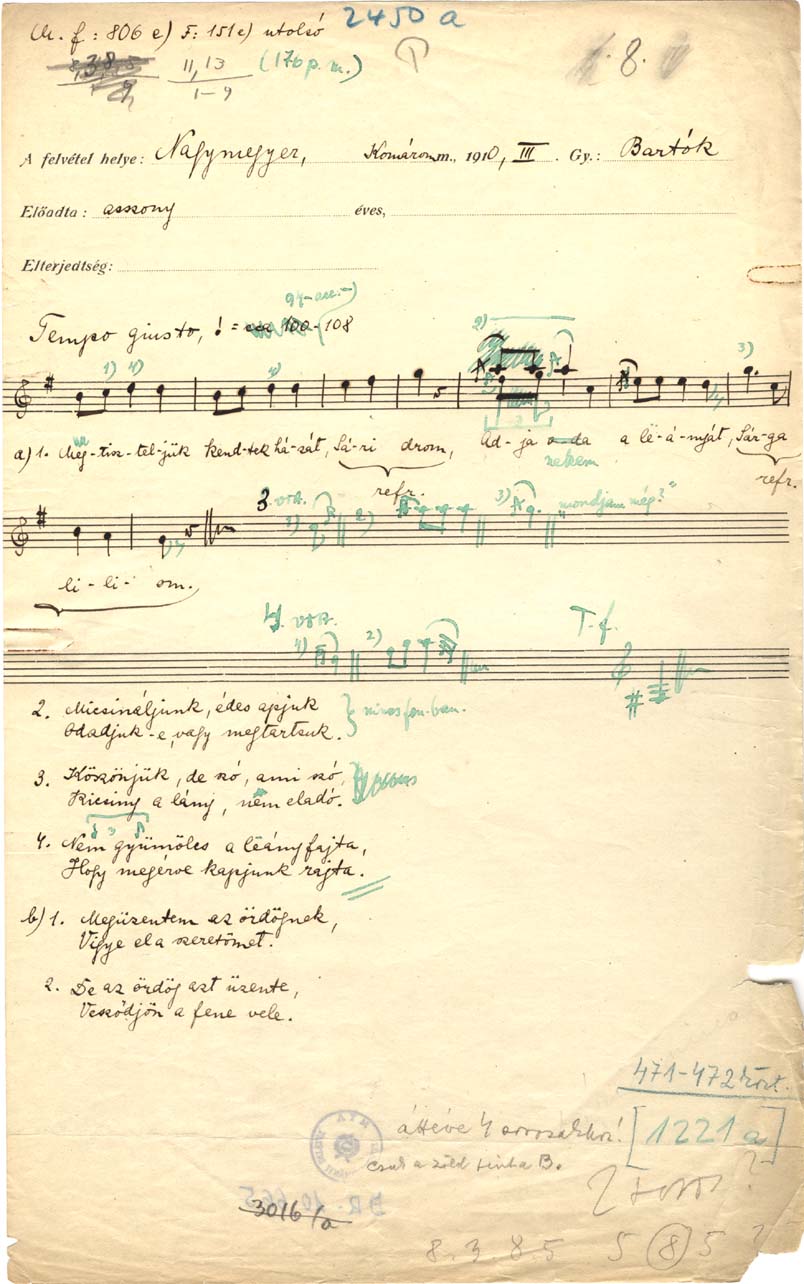 M. f: 806 e) F: 151 e) utolsó
2450 a
11, 13
1-9
(176 p. m.)
8.
A felvétel helye: Nagymegyer, Komárom m., 1910, III. Gy.: Bartók
Előadta: asszony éves,
Elterjedtség:
Tempo giusto, = 100-108
1) 2) 3)
a) 1. Meg-tisz-tel-jük kend-tek há-zát, Sá-ri drom, Ad-ja o-da a lë-á-nyát, Sár-ga
nekem
refr. refr.
3. vsz. 1) 2) 3) "mondjam még?"
li-li-om.
4. vsz. 1) 2) T-f.
2. Micsináljunk, édes apjuk
Odadjuk-e, vagy megtartsuk. } nincs fon-ban.
3. Köszönjük, de szó, ami szó,
Kicsiny a lány, nem eladó.
3
4. Nem gyümölcs a lëány fajta,
Hogy megérve kapjunk rajta.
b) 1. Megüzentem az ördögnek,
Vigye el a szeretőmet.
2. De az ördög azt üzente,
Vesződjön a fene vele.
471-472 közt.
áttéve 4 sorosakhoz! [1221 a]
csak a zöld tinta B.
3016/a
8. 3. 8. 5 5 (8) 5 ?